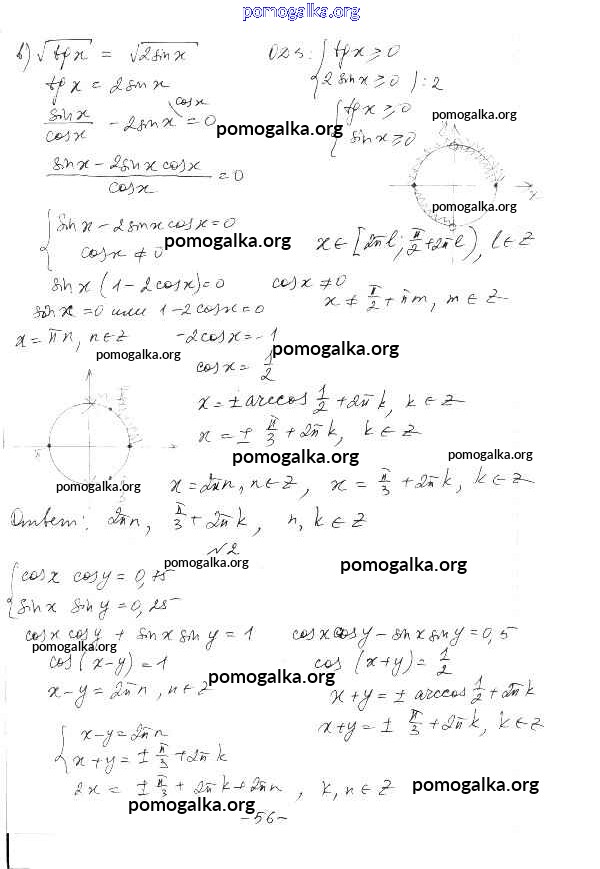 pomogalka.org
в) √tg x = √2sin x   ОДЗ: { tg x ≥ 0
tg x = 2sin x   { 2 sin x ≥ 0 ) : 2
sin x / cos x - 2sin x^cos x = 0   { tg x ≥ 0
pomogalka.org   pomogalka.org
{ sin x ≥ 0
(sin x - 2sin x cos x) / cos x = 0
pomogalka.org
{ sin x - 2sin x cos x = 0
pomogalka.org
{ cos x ≠ 0   x ∈ [2πl; π/2 + 2πl), l ∈ Z
sin x (1 - 2cos x) = 0   cos x ≠ 0
sin x = 0 или 1 - 2cos x = 0   x ≠ π/2 + πm, m ∈ Z
x = πn, n ∈ Z   -2cos x = -1
pomogalka.org   pomogalka.org
cos x = 1/2
x = ± arccos 1/2 + 2πk, k ∈ Z
x = ± π/3 + 2πk, k ∈ Z
pomogalka.org   pomogalka.org
pomogalka.org
x = 2πn, n ∈ Z, x = π/3 + 2πk, k ∈ Z
Ответ: 2πn, π/3 + 2πk, n, k ∈ Z
№2
pomogalka.org   pomogalka.org
{ cos x cos y = 0,75
{ sin x sin y = 0,25
cos x cos y + sin x sin y = 1   cos x cos y - sin x sin y = 0,5
pomogalka.org
cos (x-y) = 1   cos (x+y) = 1/2
pomogalka.org
x - y = 2πn, n ∈ Z   x + y = ± arccos 1/2 + 2πk
x + y = ± π/3 + 2πk, k ∈ Z
{ x - y = 2πn
{ x + y = ± π/3 + 2πk
2x = ± π/3 + 2πk + 2πn, k, n ∈ Z
pomogalka.org   pomogalka.org
-56-